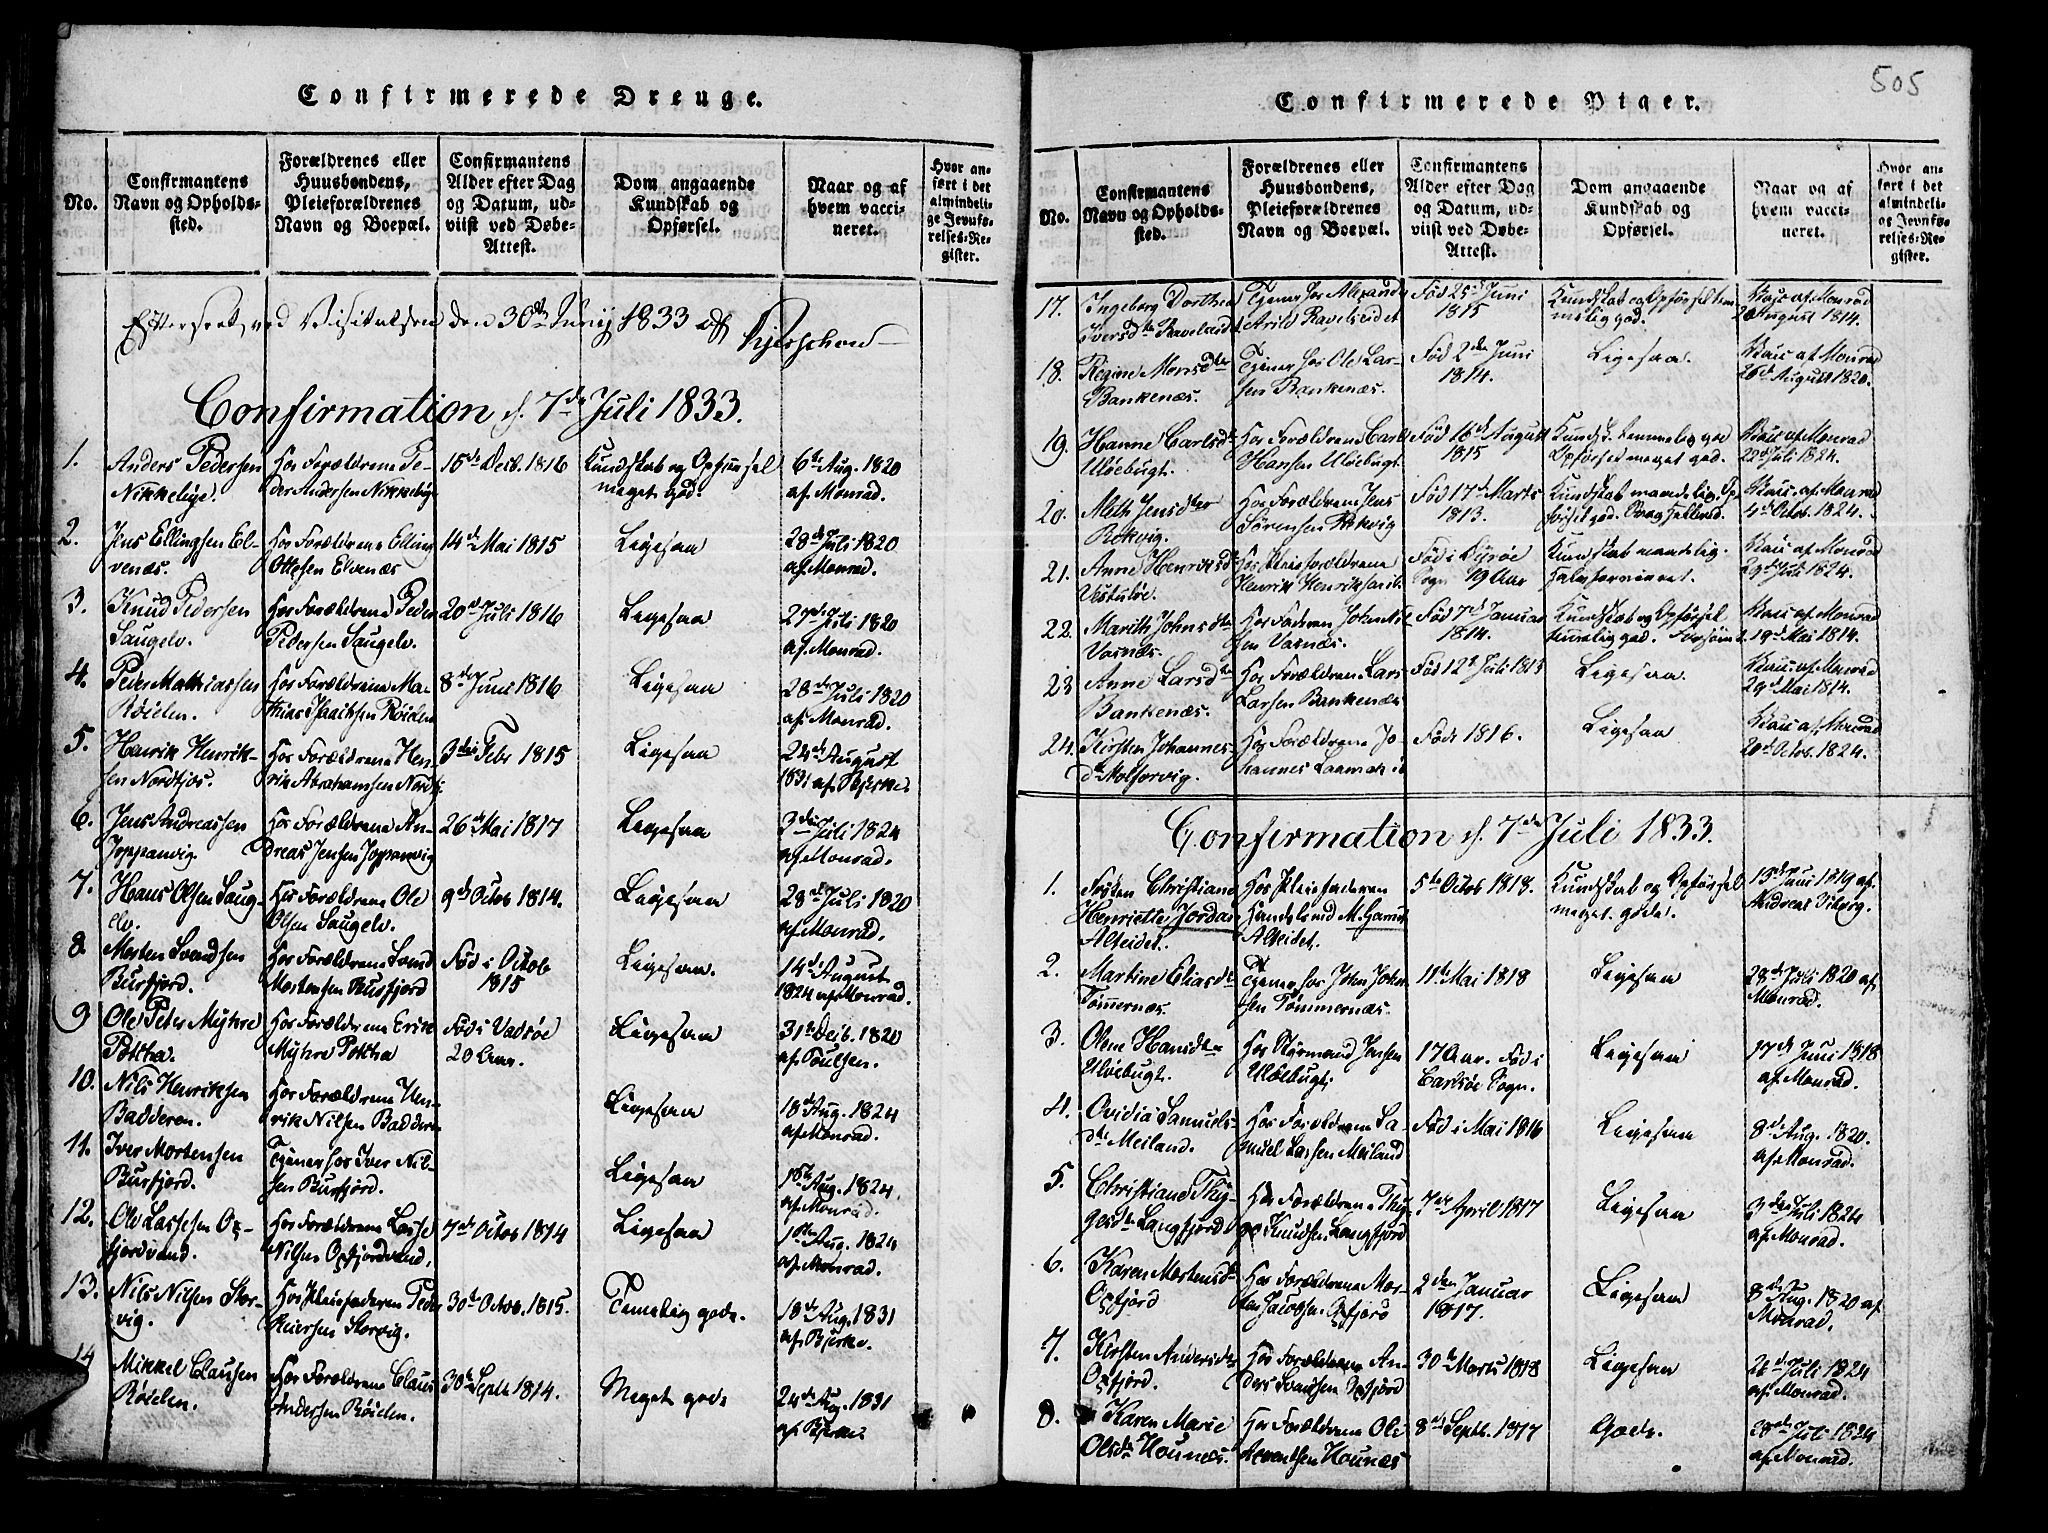 Confirmerede Drenge.
No.
Confirmantens
Navn og Opholds-
sted.
Forældrenes eller
Huusbondens,
Pleieforældrenes
Navn og Boepæl.
Confirmantens
Alder efter Dag
og Datum, ud-
viist ved Døbe-
Attest.
Dom angaaende
Kundskab og
Opførsel.
Naar og af
hvem vacci-
neret.
Hvor an-
ført i det
almindeli-
ge Jevnfø-
relses-Re-
gister.
Efterseet ved Visitatsen den 30te Junij 1833 af
Confirmation d. 7de Juli 1833.
1. Anders Pedersen
Nikkelbye.
Hos Forældrene Pe-
der Andersen Nikkelbye
15de Decb. 1816
Kundskab og Opførsel
meget god.
6te Aug. 1820
af Monrad.
2. Jens Ellingsen El-
venæs.
Hos Forældrene Elling
Ottesen Elvenæs
14de Mai 1815
Ligesaa
28de Juli 1820
af Monrad.
3. Knud Pedersen
Saugelv.
Hos Forældrene Peder
Pedersen Saugelv.
20de Juli 1816
Ligesaa
27de Juli 1820
af Monrad.
4. Peder Mathiassen
Røielen.
Hos Forældrene Ma-
thias Isachsen Røielen
8de Juni 1816
Ligesaa
28de Juli 1820
af Monrad.
5. Henrik Henrik-
sen Nordfjos.
Hos Forældrene Hen-
rik Abrahamsen Nordfj.
3die Febr 1815
Ligesaa
24de August
1831 af Bjerke.
6. Jens Andreassen
Joppanvig.
Hos Forældrene An-
dreas Jensen Joppanvig
26de Mai 1817
Ligesaa
3die Juli 1824
af Monrad.
7. Hans Olsen Saug-
elv.
Hos Forældrene Ole
Olsen Saugelv.
9de Octob 1814.
Ligesaa
28de Juli 1820
af Monrad.
8. Morten Svendsen
Burfjord.
Hos Forældrene Svend
Mortensen Burfjord
Fød i Octob
1815
Ligesaa.
14de August
1824 af Monrad.
9 Ole Peter Myhre
Pottha.
Hos Forældrene Erik
Myhre Pottha
Fød i Vadsøe
20 Aar.
Ligesaa
31te Decb. 1820
af Poulsen.
10. Nils Henriksen
Badderen.
Hos Forældrene Hen-
rik Nilsen Baddere
Ligesaa
18de Aug. 1824
af Monrad.
11. Iver Mortensen
Burfjord.
Tjener hos Iver Nil-
sen Burfjord.
Ligesaa
Aug. 1824
af Monrad.
12. Ole Lassesen Ox-
fjordvand.
Hos Forældrene Lasse
Nilsen Oxfjordvand.
7de Octob 1814
Ligesaa
Aug. 1824
af Monrad.
13. Nils Nilsen Stor-
vig.
Hos Pleiefaderen Peder
Reiersen Storvig.
30te Octob. 1815.
Temelig gode.
18de Aug. 1831
af Bjerke.
14 Mikkel Clausen
Røielen.
Hos Forældrene Claus
Andersen Røielen.
30te Septb. 1814.
Meget gode
24de Aug. 1831
af Bjerke
505
Confirmerede Piger.
No.
Confirmantens
Navn og Opholds-
sted.
Forældrenes eller
Huusbondens,
Pleieforældrenes
Navn og Boepæl.
Confirmantens
Alder efter Dag
og Datum, ud-
viist ved Døbe-
Attest.
Dom angaaende
Kundskab og
Opførsel.
Naar og af
hvem vacci-
neret.
Hvor an-
ført i det
almindeli-
ge Jevnfø-
relses-Re-
gister.
17. Ingeborg Dorthea
Iversdtr Ravelseidet
Tjener hos Alexander
Arild Ravelseidet
Fød 25de Juni
1815
Kundskab og Opførsel tem-
melig god.
Vacc. af Monrad
August 1814.
18. Regine Monsdtr
Bankenæs.
Tjener hos Ole Lar-
sen Bankenæs.
Fød 2den Juni
1814.
Ligesaa.
Vacc. af Monrad
26de August 1820.
19. Hanne Carlsdtr
Uløebugt.
Hos Forældrene Carl
Hansen Uløebugt.
Fød 16de August
1815
Kundsk. temmelig god
Opførsel meget god.
Vacc. af Monrad
22de Juli 1824.
20. Meth Jensdter
Rokvig.
Hos Forældrene Jens
Sørensen Rokvig
Fød 17de Marts
1813.
Kundskab maadelig. Op-
førsel god.
Vacc. af Monrad
4de Octob. 1824.
21. Anne Henriksd
Hos Pleieforældrene
Fød i
Sogn 19 Aar
Kundskab maadelig.
Vacc. af Monrad
29de Juli 1824.
22. Marith Johnsdtr
Vasnæs.
Hos Faderen John Nil-
sen Vasnæs.
Fød 7de Januar
1814.
Kundskab og Opførsel
Vacc. af Monrad
19de Mai 1814.
23 Anne Larsdtr
Bankenæs.
Hos Forældrene Lars
Larsen Bankenæs
Fød 12te Juli 1813
Ligesaa
Vacc. af Monrad
29de Mai 1814.
24. Kirsten Johannes-
dtr Molforvig.
Hos Forældrene Jo-
hannes
Født 1816.
Ligesaa
Vacc. af Monrad
20de Octob. 1824.
Confirmation d. 7de Juli 1833.
1. Frøken Christiane
Henriette Jordan
Alteidet.
Hos Pleiefaderen
Handelsmd M. Gams
Alteidet.
5te Octob 1818.
Kundskab og Opførsel
meget gode.
13de Juni 1819 af
Andreas Viberg.
2. Martine Eliasdtr
Tømmernæs.
Tjener hos John John-
sen Tømmernæs.
11te Mai 1818
Ligesaa
28de Juli 1820 af
Monrad.
3. Olene Hansdtr
Uløebugt.
Hos Styrmand Jensen
Uløebugt.
17 Aar. Fød i
Carlsøe Sogn.
Ligesaa
17de Juni 1818
af Monrad.
4. Ovidia Samuels-
dtr Meiland.
Hos Forældrene Sa-
muel Lassen Meiland
Fød i Mai 1816
Ligesaa
8de Aug. 1820.
af Monrad.
5. Christiane Thy-
gesdtr Langfjord
Hos Forældrene Thy-
ge Knudsen Langfjord
7de April 1817
Ligesaa
3die Juli 1824
af Monrad.
6. Karen Mortensdtr
Oxfjord
Hos Forældrene Mor-
ten Jacobsen Oxfjord
2den Januar
1817.
Ligesaa
8de Aug. 1820 af
Monrad.
7. Kirsten Andersdtr
Oxfjord.
Hos Forældrene An-
ders Svendsen Oxfjord
30te Marts 1818
Ligesaa
26de Juli 1824
af Monrad.
8. Karen Marie
Olsdtr Hounæs.
Hos Forældrene Ole
Arentsen Hounæs
8de Septb. 1817
Gode.
28de Juli 1824
af Monrad.